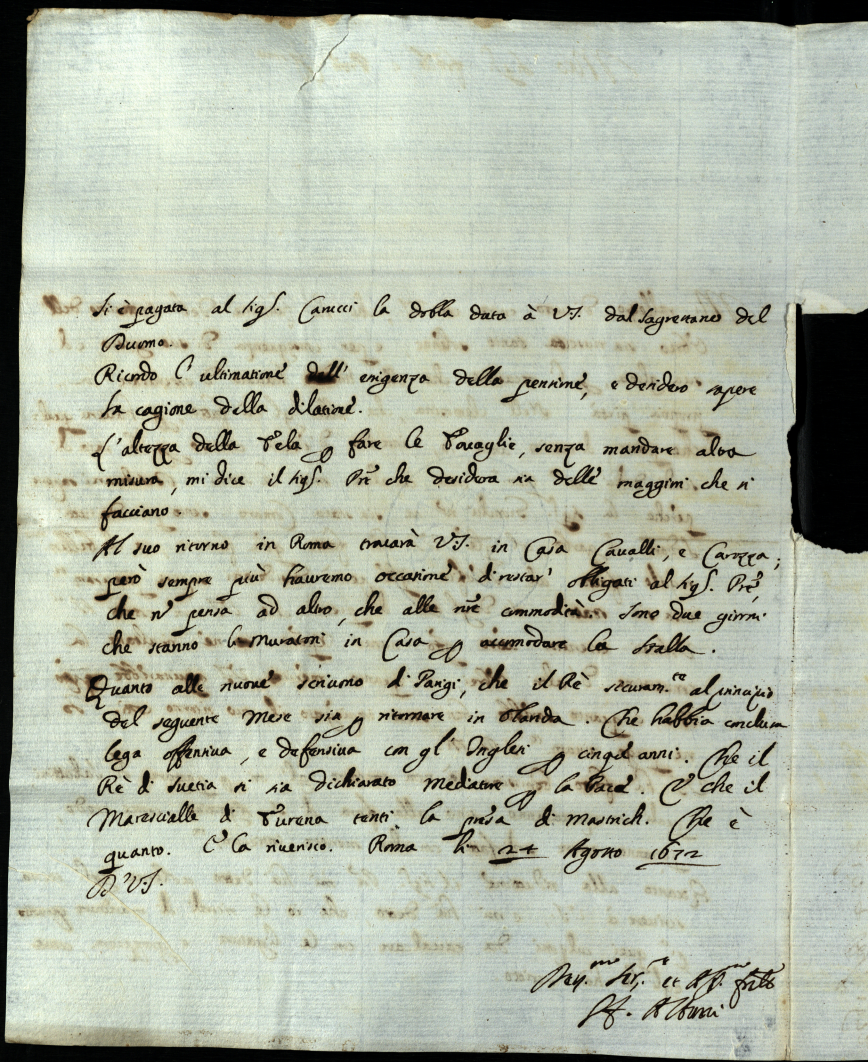 Si è pagata al Sig.r Carucci la dobla data à V.S. dal Sagrestano del
Duomo.
Ricordo l'ultimatione dell' esigenza della pensione, e desidero sapere
la cagione della dilatione.
L'altezza della Tela p fare le Tovaglie, senza mandare altra
misura, mi dice il Sig.r Pre che desidera sia delle maggiori che si
facciano.
Al suo ritorno in Roma trovarà V.S. in Casa Cavalli, e Carozza;
però sempre più hauremo occasione di restar' obligati al Sig.r Pre,
che nō pensa ad altro, che alle nre commodità. Sono due giorni
che stanno li Muratori in Casa p accomodare la stalla.
Quanto alle nuove scrivono di Parigi, che il Rè sicuram.te al principio
del seguente Mese sia p ritornare in Olanda. Che habbia conclusa
lega offensiva, e defensiva con gl' Inglesi p cinque anni. Che il
Rè di Suetia si sia dichiarato Mediatore p la Pace. E che il
Maresciallo di Turena tenti la presa di Mastrich. Che è
quanto. E la riverisco. Roma li 24 Agosto 1672
D V.S.
Ser.re et Aff.mo frllo
Albani